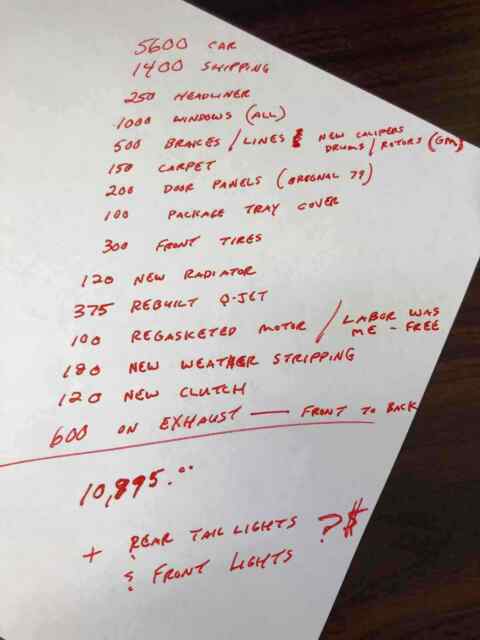 5600 CAR
1400 SHIPPING
250 HEADLINER
1000 WINDOWS (ALL)
500 BRAKES / LINES & NEW CALIPERS
DRUMS / ROTORS (GM)
150 CARPET
200 DOOR PANELS (OREGNAL 79)
100 PACKAGE TRAY COVER
300 FRONT TIRES
120 NEW RADIATOR
375 REBUILT Q-JET
100 REGASKETED MOTOR / LABOR WAS
ME - FREE
180 NEW WEATHER STRIPPING
120 NEW CLUTCH
600 ON EXHAUST — FRONT TO BACK
10,895.00
+ REAR TAIL LIGHTS ?$
& FRONT LIGHTS